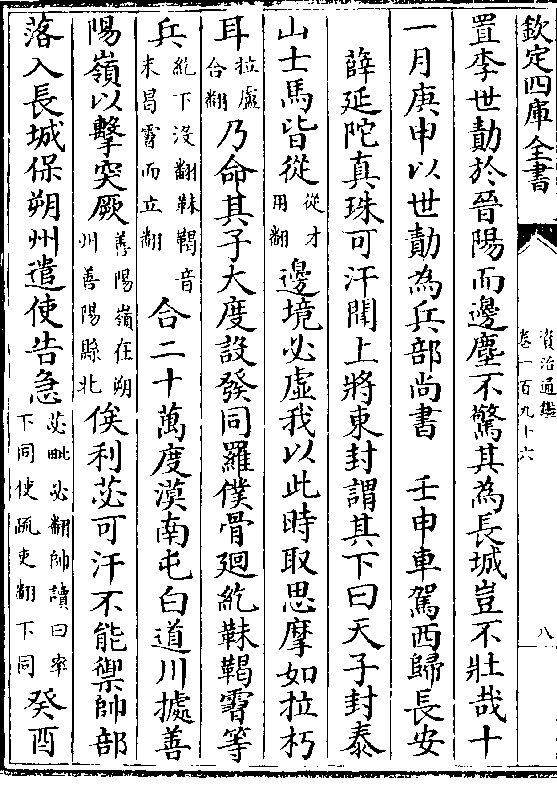 欽定四庫全書
資治通鑑
卷一百九十六
八
置李世勣於晉陽而邊塵不驚其為長城豈不壯哉十
一月庚申以世勣為兵部尚書　壬申車駕西歸長安
薛延陀真珠可汗聞上將東封謂其下曰天子封泰
山士馬皆從從才用翻邊境必虛我以此時取思摩如拉朽
耳拉盧合翻乃命其子大度設發同羅僕骨廻紇靺鞨霫等
兵紇下沒翻靺鞨音末曷霫而立翻合二十萬度漠南屯白道川據善
陽嶺以擊突厥善陽嶺在朔州善陽縣北俟利苾可汗不能禦帥部
落入長城保朔州遣使告急苾毗必翻帥讀曰率下同使疏吏翻下同癸酉